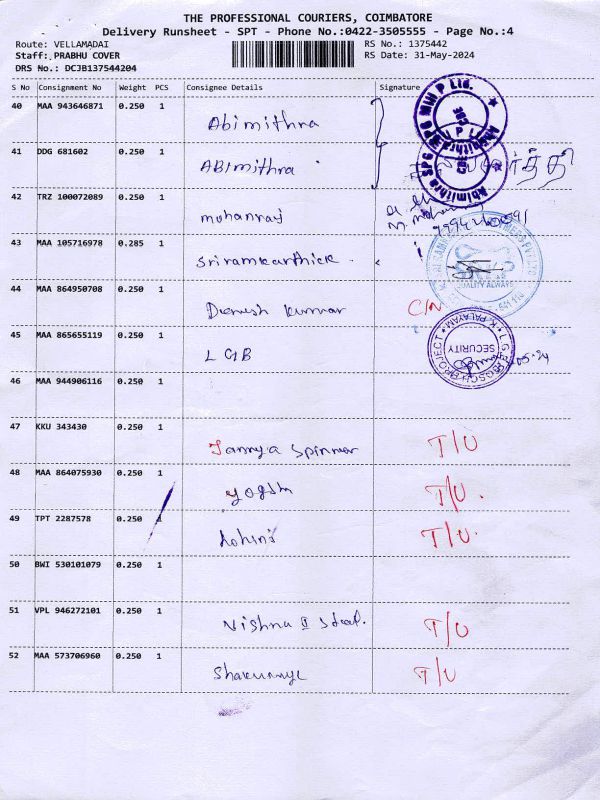 THE PROFESSIONAL COURIERS, COIMBATORE
Delivery Runsheet - SPT - Phone No.:0422-3505555 - Page No.:4
Route: VELLAMADAI RS No.: 1375442
Staff: PRABHU COVER RS Date: 31-May-2024
DRS No.: DCJB137544204
S No Consignment No Weight PCS Consignee Details Signature
40 MAA 943646871 0.250 1 Abimithra
41 DDG 681602 0.250 1 ABImithra
42 TRZ 100072089 0.250 1 mohanraj
43 MAA 105716978 0.285 1 Sriramkarthick
QUALITY ALWAYS
44 MAA 864950708 0.250 1 Dienesh kumar C/N
45 MAA 865655119 0.250 1 LGB
SECURITY
46 MAA 944906116 0.250 1
47 KKU 343430 0.250 1 Tamnya Spinner T/U
48 MAA 864075930 0.250 1 yogesh T/U
49 TPT 2287578 0.250 1 Rohini T/U
50 BWI 530101079 0.250 1
51 VPL 946272101 0.250 1 Vishnu II Steel. T/U
52 MAA 573706960 0.250 1 T/U